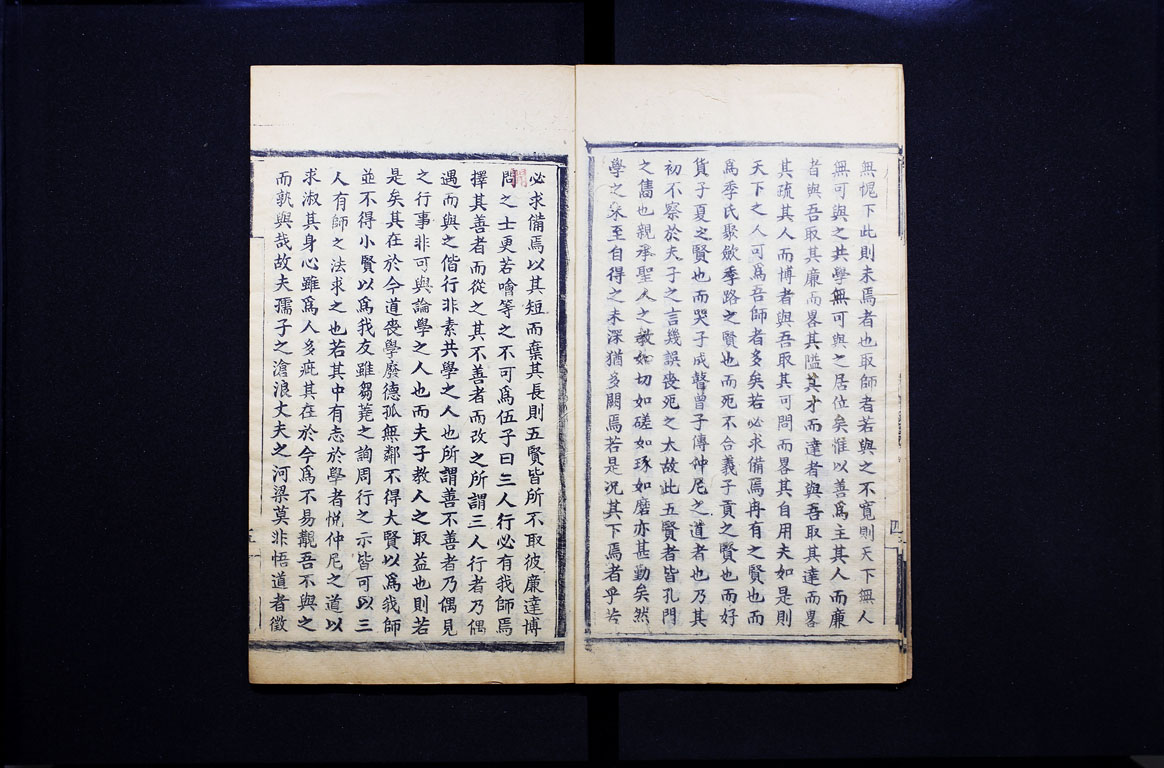 無愧下此則未焉者也取師者若與之不寬則天下無人
無可與之共學無可與之居位矣惟以善爲主其人而廉
者與吾取其廉而畧其隘其才而達者與吾取其達而畧
其疏其人而博者與吾取其可問而畧其自用夫如是則
天下之人可爲吾師者多矣若必求備焉冉有之賢也而
爲季氏聚斂季路之賢也而死不合義子貢之賢也而好
貨子夏之賢也而哭子成瞽曾子傳仲尼之道者也乃其
初不察於夫子之言幾誤喪死之大故此五賢者皆孔門
之儁也親承聖人之教如切如磋如琢如磨亦甚勤矣然
學之未至自得之未深猶多闕焉若是况其下焉者乎若
四
必求備焉以其短而棄其長則五賢皆所不取彼廉達博
問之士更若噲等之不可爲伍子曰三人行必有我師焉
擇其善者而從之其不善者而改之所謂三人行者乃偶
遇而與之偕行非素共學之人也所謂善不善者乃偶見
之行事非可與論學之人也而夫子教人之取益也則若
是矣其在於今道喪學廢德孤無鄰不得大賢以爲我師
並不得小賢以爲我友雖芻蕘之詢周行之示皆可以三
人有師之法求之也若其中有志於學者悅仲尼之道以
求淑其身心雖爲人多疵其在於今爲不易覯吾不與之
而孰與哉故夫孺子之滄浪丈夫之河梁莫非悟道者徵
五